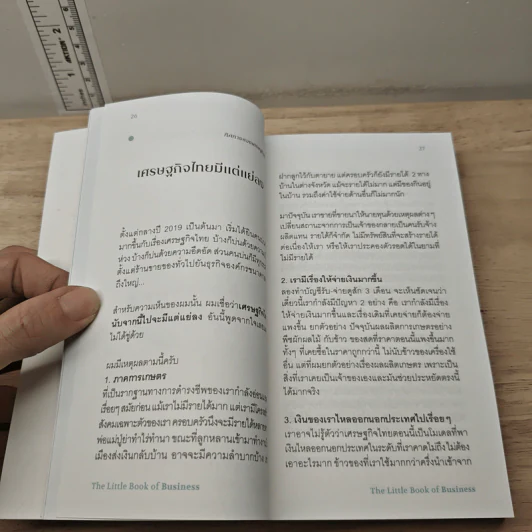 26
เศรษฐกิจไทยมีแต่แย่ลง
ตั้งแต่กลางปี 2019 เป็นต้นมา เริ่มได้ยินคน
มากขึ้นกับเรื่องเศรษฐกิจไทย บ้างก็บ่นด้วยความ
ห่วง บ้างก็บ่นด้วยความอึดอัด ส่วนคนบ่นก็มีทุก
ตั้งแต่ร้านขายของทั่วไปยันธุรกิจองค์กรขนาด
ถึงใหญ่...
สำหรับความเห็นของผมนั้น ผมเชื่อว่าเศรษฐกิจ
นับจากนี้ไปจะมีแต่แย่ลง อันนี้พูดจากใจเลย
ไม่ได้ขู่ด้วย
ผมมีเหตุผลตามนี้ครับ
1. ภาคการเกษตร
ที่เป็นรากฐานทางการดำรงชีพของเรากำลังอ่อน
เรื่อยๆ สมัยก่อน แม้เราไม่มีรายได้มาก แต่เรามีโครง
สังคมเฉพาะตัวของเรา ครอบครัวนึงจะมีรายได้หลาย
พ่อแม่ปู่ย่าทำไร่ทำนา ขณะที่ลูกหลานเข้ามาทำงาน
เมืองส่งเงินกลับบ้าน อาจจะมีความลำบากบ้าง
The Little Book of Business
27
ฝากลูกไว้กับตายาย แต่ครอบครัวก็ยังมีรายได้ 2 ทาง
บ้านในต่างจังหวัด แม้จะรายได้ไม่มาก แต่มีของกินอยู่
ในบ้าน รวมถึงค่าใช้จ่ายด้านอื่นก็ไม่มากนัก
มาปัจจุบัน เราขายที่ขายนาให้นายทุนด้วยเหตุผลต่างๆ
เปลี่ยนสถานะจากการเป็นเจ้าของกลายเป็นคนรับจ้าง
ผลิตแทน รายได้ก็จำกัด ไม่มีทรัพย์สินที่จะสร้างรายได้
ต่อเนื่องให้เรา หรือให้เราประคองตัวรอดได้ในยามที่
ไม่มีรายได้
2. เรามีเรื่องให้จ่ายเงินมากขึ้น
ลองทำบัญชีรับ-จ่ายดูสัก 3 เดือน จะเห็นชัดเจนว่า
เดี๋ยวนี้เรากำลังมีปัญหา 2 อย่าง คือ เรากำลังมีเรื่อง
ให้จ่ายเงินมากขึ้นและเรื่องเดิมที่เคยจ่ายก็ต้องจ่าย
แพงขึ้น ยกตัวอย่าง ปัจจุบันผลผลิตการเกษตรอย่าง
พืชผักผลไม้ กับข้าว ของสดที่ราคาตอนนี้แพงขึ้นมาก
ทั้งๆ ที่เคยซื้อในราคาถูกกว่านี้ ไม่นับข้าวของเครื่องใช้
อื่น แต่ที่ผมยกตัวอย่างเรื่องผลผลิตเกษตร เพราะเป็น
สิ่งที่เราเคยเป็นเจ้าของเองและมันช่วยประหยัดตรงนี้
ได้มากจริง
3. เงินของเราไหลออกนอกประเทศไปเรื่อยๆ
เราอาจไม่รู้ตัวว่าเศรษฐกิจไทยตอนนี้เป็นโมเดลที่พา
เงินไหลออกนอกประเทศในระดับที่เราคาดไม่ถึง ไม่ต้อง
เอาอะไรมาก ข้าวของที่เราใช้มากกว่าครึ่งนำเข้าจาก
The Little Book of Business